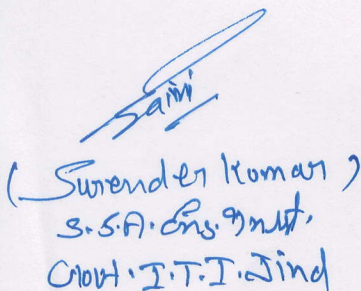 Saini
(Surender Kumar)
S.S.A. Eng. Inst.
Govt. I.T.I. Jind